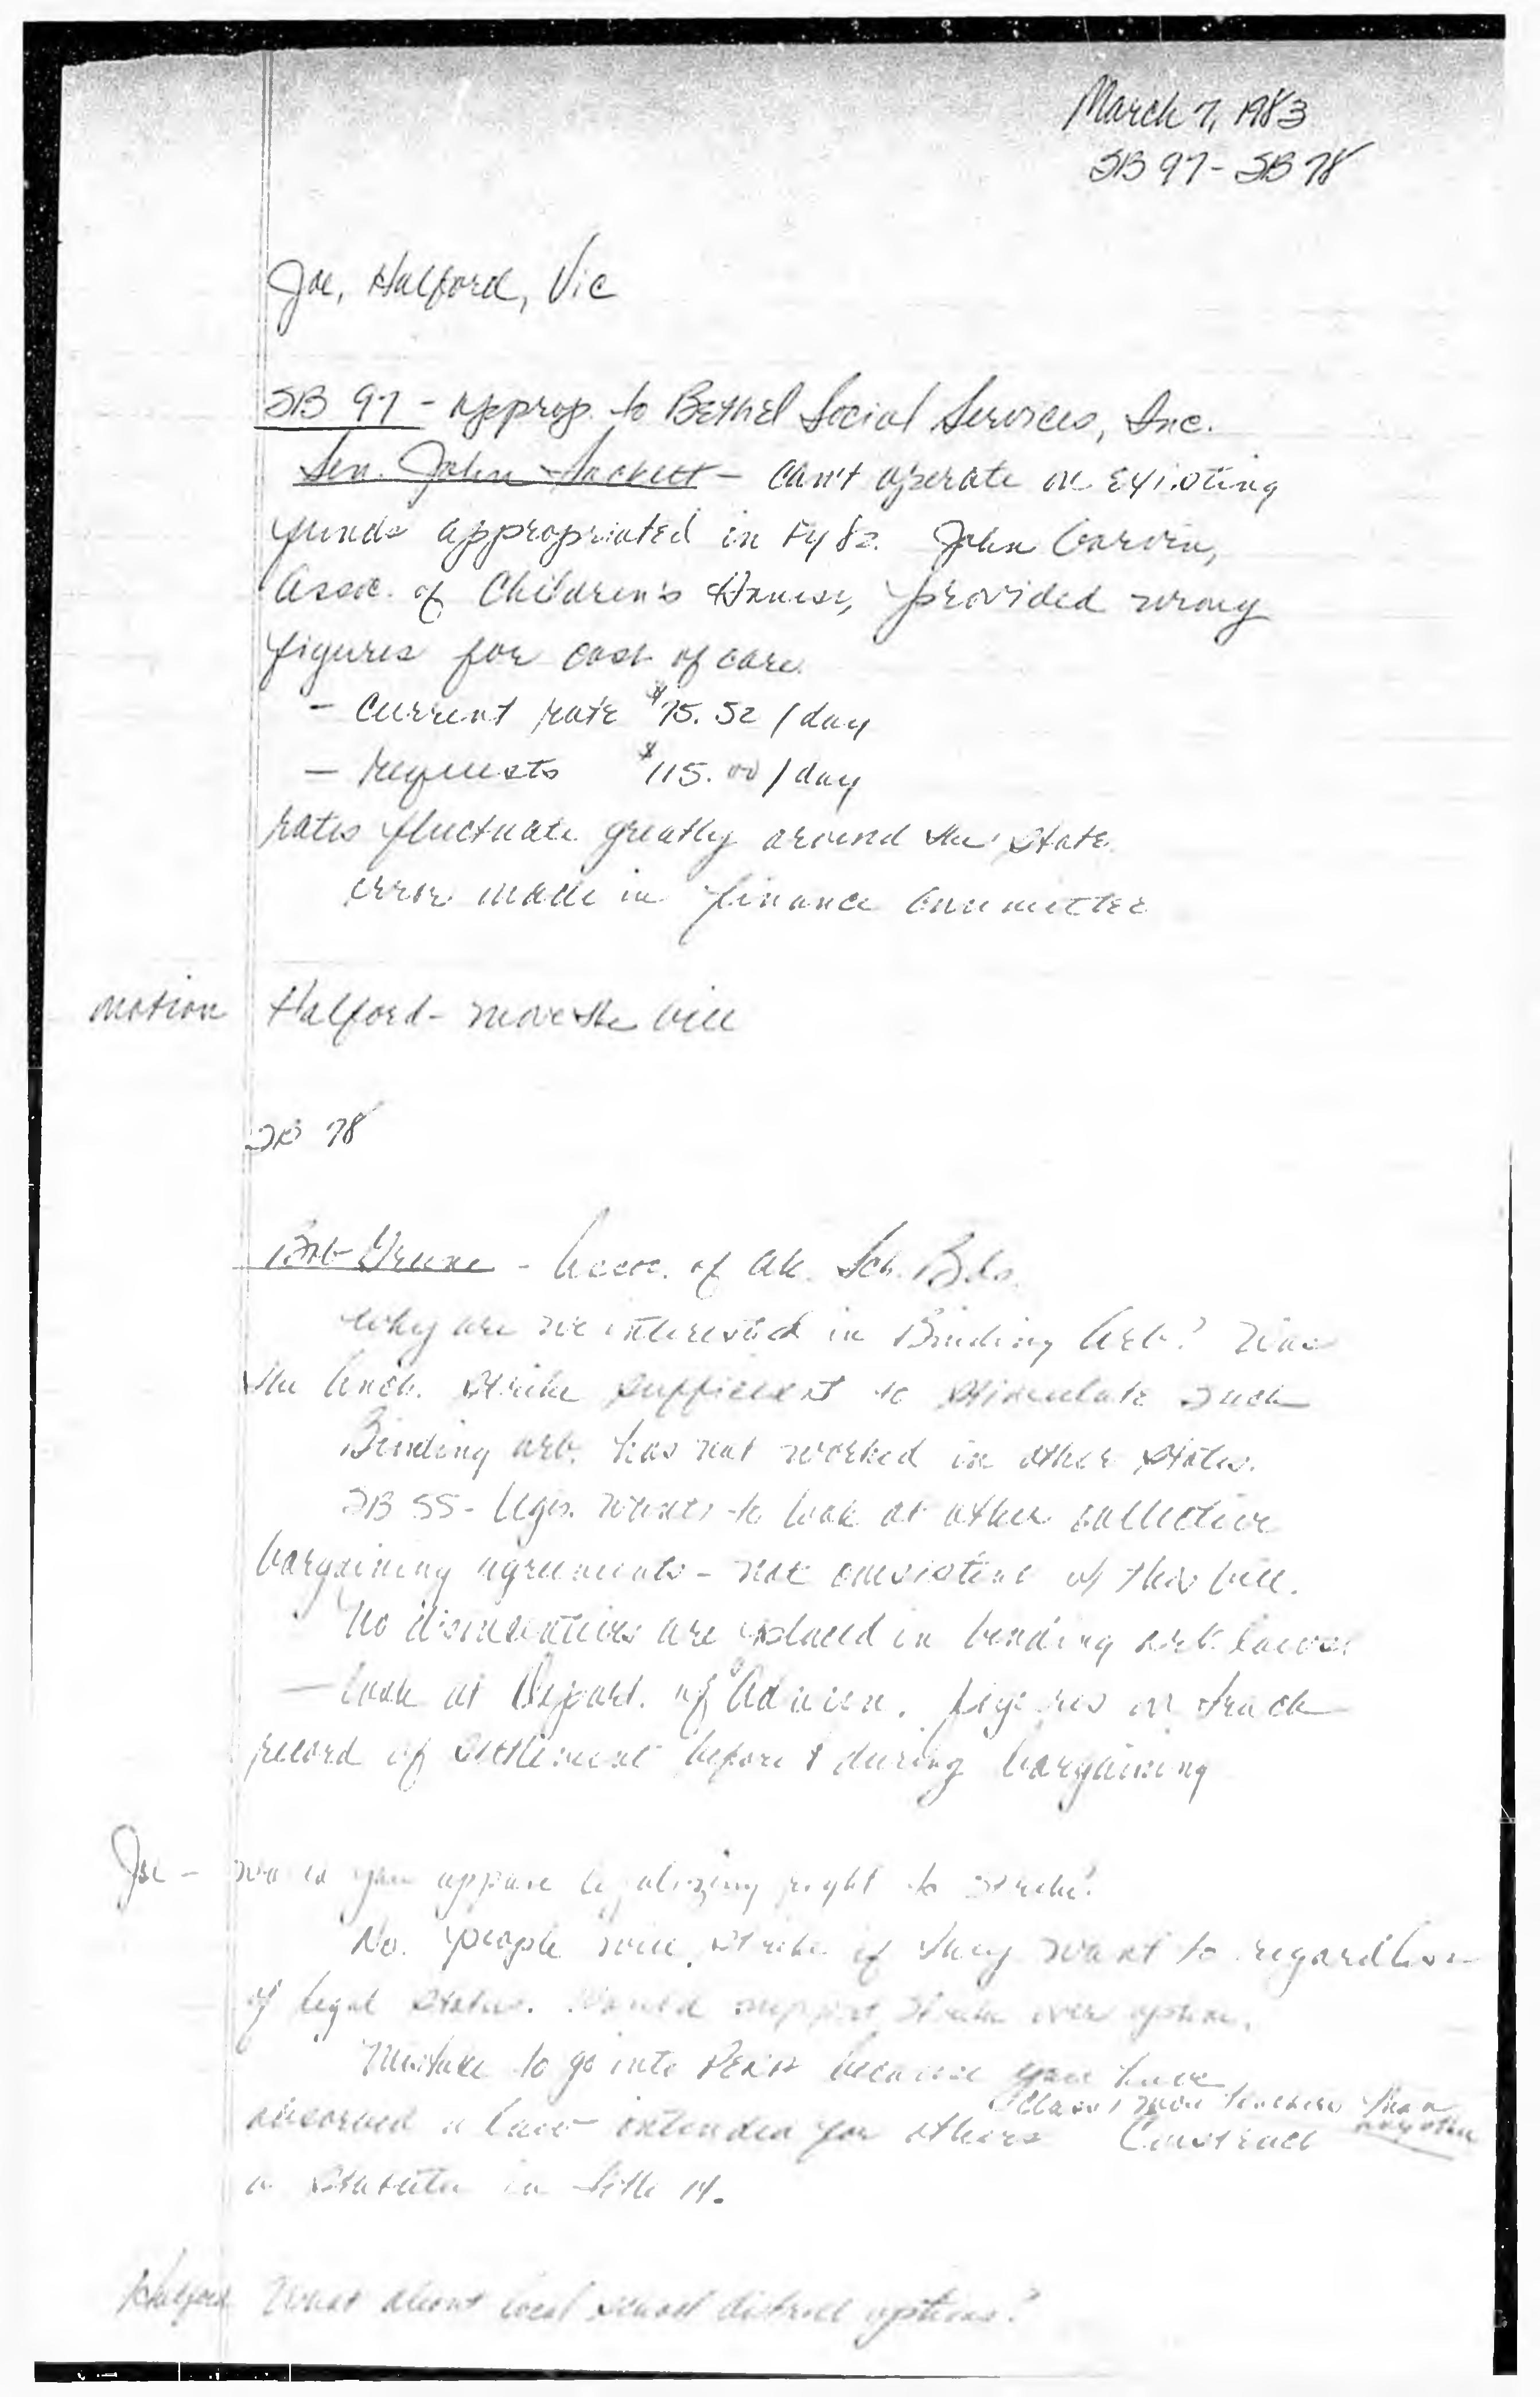 March 7, 1983
SB 97 - SB 78
Joe, Halford, Vic
SB 97 - approp. to Bethel Social Services, Inc.
Sen. John Sackett - Can't operate on existing
funds appropriated in FY 82. John Garvin,
Assoc. of Children's Homes, provided wrong
figures for cost of care.
- Current rate $75.52 / day
- requests $115.00 / day
rates fluctuate greatly around the state.
error made in finance committee
motion Halford - move the bill
SB 78
Bob Greene - Assoc. of Ak. Sch. Bds.
Why are we interested in Binding Arb? Was
the Anch. strike sufficient to stimulate such
Binding arb. has not worked in other states.
SB 55 - Legis. wants to look at other collective
bargaining agreements - not consistent w/ this bill.
No disincentives are placed in binding arb. laws.
- look at Depart. of Admin. figures on track
record of settlement before & during bargaining
Joe - would you oppose legalizing right to strike?
No. people will strike if they want to regardless
of legal status. Would support strike over option.
Mistake to go into PERA because you have
Class, more teachers than any other
absorbed a law intended for others Construct
a statute in title 14.
Halford What about local school district options?